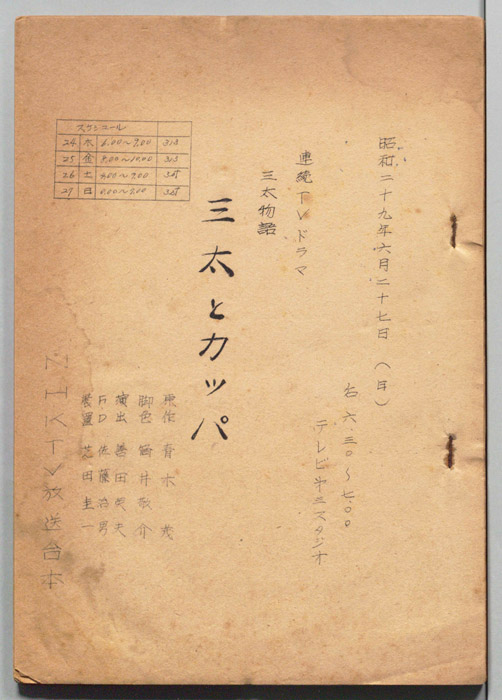 昭和二十九年六月二十七日（日）
六.三〇～七.〇〇
テレビ第三スタジオ
連続TVドラマ
三太物語
三太とカッパ
原作 青木茂
脚色 筒井敬介
演出 畠田英夫
FD 佐藤治男
装置 芝田圭一
NHKTV放送台本
スケジュール
24 木 6.00～9.00
25 金 8.00～10.00
26 土
27 日